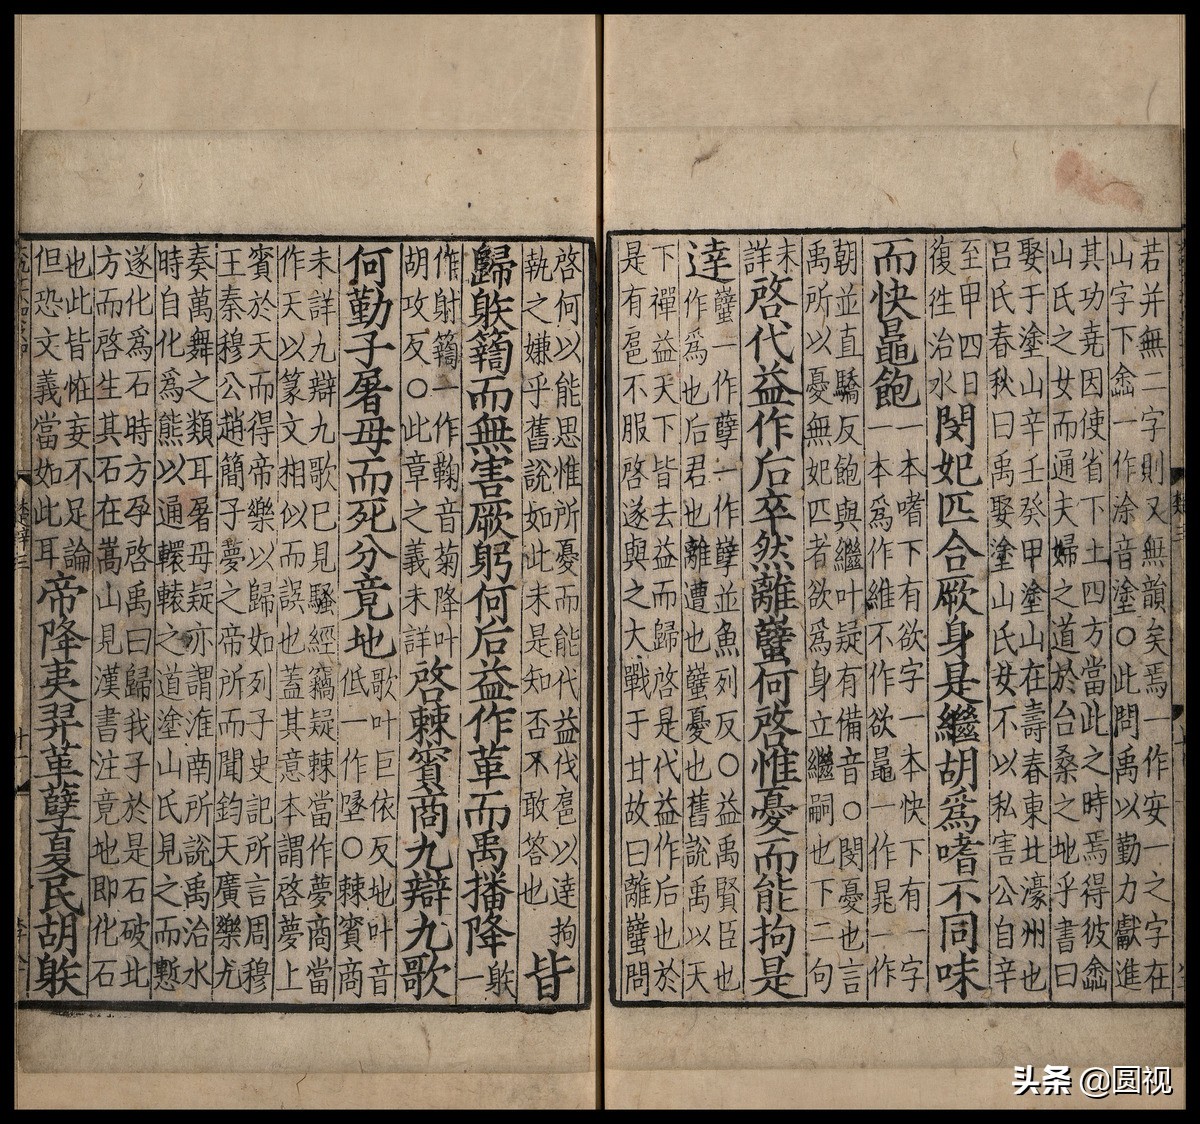 若并無二字則又無韻矣焉一作安一之字在
山字下嵞一作涂音塗○此問禹以勤力獻進
其功堯因使省下土四方當此之時焉得彼嵞
山氏之女而通夫婦之道於台桑之地乎書曰
娶于塗山辛壬癸甲塗山在壽春東北濠州也
呂氏春秋曰禹娶塗山氏女不以私害公自辛
至甲四日
復往治水
閔妃匹合厥身是繼胡爲嗜不同味
而快鼂飽
一本嗜下有欲字一本快下有一字
一本爲作維不作欲鼂一作晁一作
朝並直驕反飽與繼叶疑有備音○閔憂也言
禹所以憂無妃匹者欲爲身立繼嗣也下二句
未
詳
啓代益作后卒然離蠥何啓惟憂而能拘是
達
蠥一作孽一作孼並魚列反○益禹賢臣也
作爲也后君也離遭也蠥憂也舊說禹以天
下禪益天下皆去益而歸啓是代益作后也於
是有扈不服啓遂與之大戰于甘故曰離蠥問
啓何以能思惟所憂而能代益伐扈以達拘
執之嫌乎舊說如此未是知否不敢答也
皆
歸䠶䉗而無害厥躬何后益作革而禹播降
䠶
一
作射䉗一作鞠音菊降叶
胡攻反○此章之義未詳
啓棘賓商九辯九歌
何勤子屠母而死分竟地
歌叶巨依反地叶音
低一作墬○棘賓商
未詳九辯九歌已見騷經竊疑棘當作夢商當
作天以篆文相似而誤也蓋其意本謂啓夢上
賓於天而得帝樂以歸如列子史記所言周穆
王秦穆公趙簡子夢之帝所而聞鈞天廣樂尤
奏萬舞之類耳屠母疑亦謂淮南所說禹治水
時自化爲熊以通轘轅之道塗山氏見之而慙
遂化爲石時方孕啓禹曰歸我子於是石破北
方而啓生其石在嵩山見漢書注竟地即化石
也此皆恠妄不足論
但恐文義當如此耳
帝降夷羿革孽夏民胡䠶
头条 @圆视